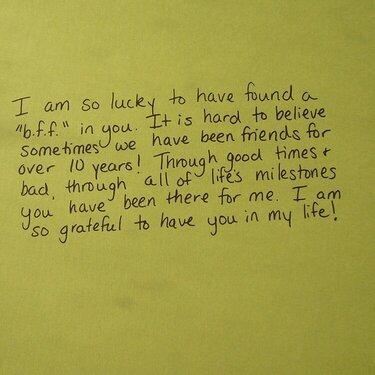 I am so lucky to have found a
"b.f.f." in you. It is hard to believe
sometimes we have been friends for
over 10 years! Through good times +
bad, through all of life's milestones
you have been there for me. I am
so grateful to have you in my life!